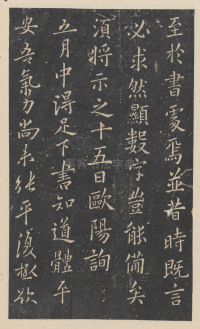 至於書處焉並昔時既言
必求然顯數字豈能備矣
須將示之十五日歐陽詢
五月中得足下書知道體平
安吾氣力尚未能平復極欲